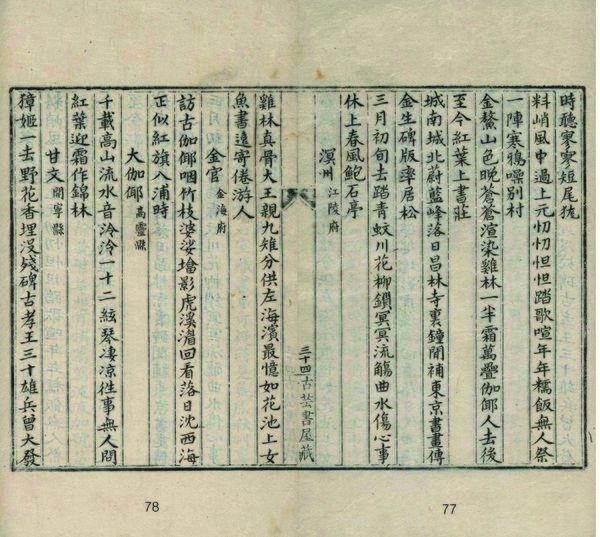 時聽寥寥短尾狵
料峭風中過上元忉忉怛怛踏歌喧年年糯飯無人祭
一陣寒鴉噪別村
金鰲山色晚蒼蒼渲染雞林一半霜萬疊伽倻人去後
至今紅葉上書莊
城南城北蔚藍峰落日昌林寺裏鐘閒補東京書畫傳
金生碑版率居松
三月初旬去踏青蚊川花柳鎖冥冥流觴曲水傷心事
休上春風鮑石亭
溟州 江陵府
三十四 古芸書屋藏
雞林真骨大王親九雉分供左海濱最憶如花池上女
魚書遠寄倦游人
金官 金海府
訪古伽倻咽竹枝婆娑墖影虎溪湄回看落日沈西海
正似紅旗入浦時
大伽倻 高靈縣
千載高山流水音泠泠一十二絃琴凄涼往事無人問
紅葉迎霜作錦林
甘文 開寧縣
獐姬一去野花香埋沒殘碑古孝王三十雄兵曾大發
77
78